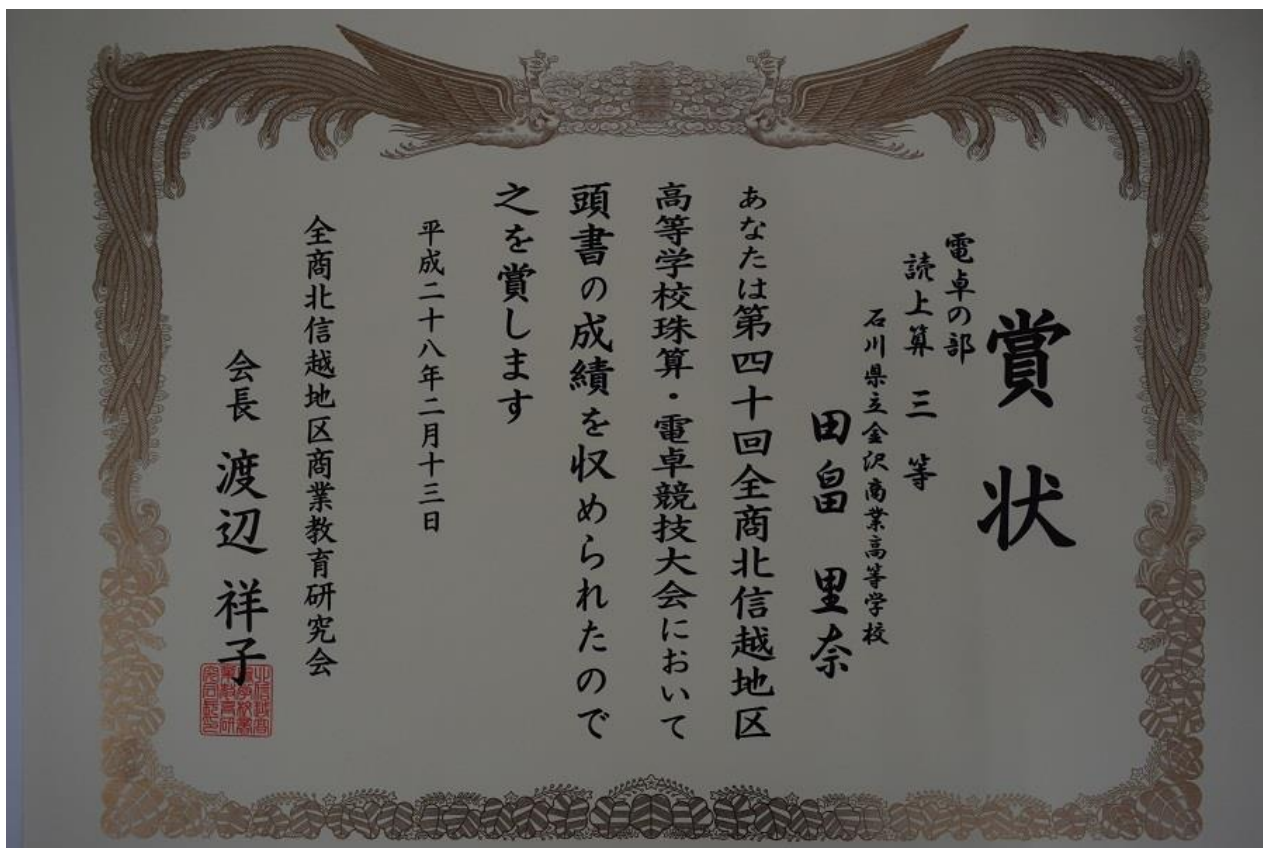 賞状
電卓の部
読上算 三等
石川県立金沢商業高等学校
田畠 里奈
あなたは第四十回全商北信越地区
高等学校珠算・電卓競技大会において
頭書の成績を収められたので
之を賞します
平成二十八年二月十三日
全商北信越地区商業教育研究会
会長 渡辺 祥子